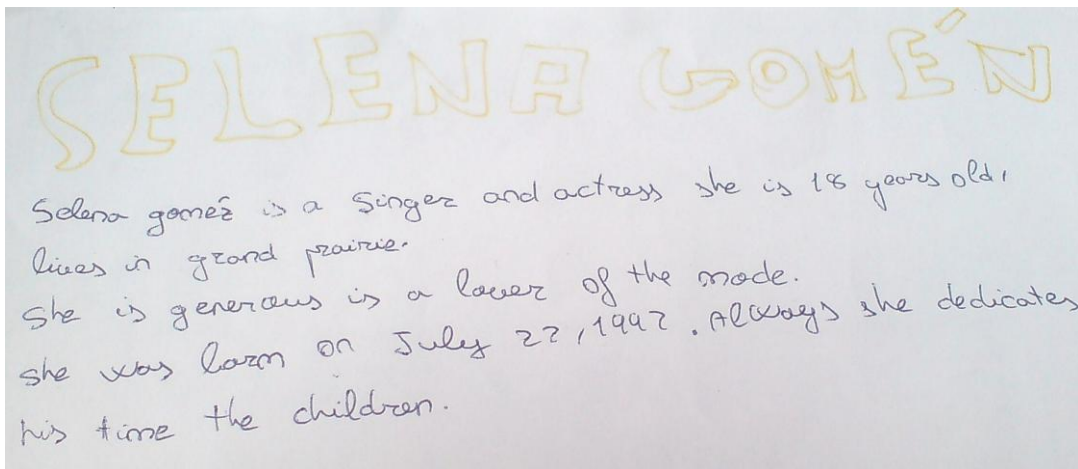 SELENA GOMÉN
Selena gomez is a Singer and actress she is 18 years old,
lives in grand prairie.
She is generous is a lover of the mode.
she was born on July 22, 1992. Always she dedicates
his time the children.